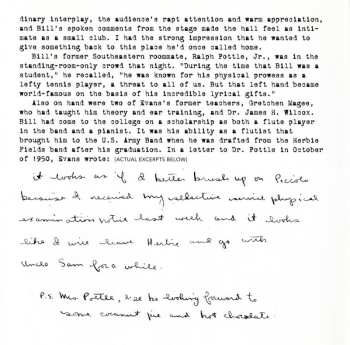 dinary interplay, the audience's rapt attention and warm appreciation,
and Bill's spoken comments from the stage made the hall feel as inti-
mate as a small club. I had the strong impression that he wanted to
give something back to this place he'd once called home.
Bill's former Southeastern roommate, Ralph Pottle, Jr., was in the
standing-room-only crowd that night. "During the time that Bill was a
student," he recalled, "he was known for his physical prowess as a
lefty tennis player, a threat to all of us. But that left hand became
world-famous on the basis of his incredible lyrical gifts."
Also on hand were two of Evans's former teachers, Gretchen Magee,
who had taught him theory and ear training, and Dr. James H. Wilcox.
Bill had come to the college on a scholarship as both a flute player
in the band and a pianist. It was his ability as a flutist that
brought him to the U.S. Army Band when he was drafted from the Herbie
Fields band after his graduation. In a letter to Dr. Pottle in October
of 1950, Evans wrote: [ACTUAL EXCERPTS BELOW]
it looks as if I better brush up on Piccolo
because I received my selective service physical
examination notice last week and it looks
like I will leave Herbie and go with
Uncle Sam for a while.
P.S. Mrs. Pottle, I'll be looking forward to
some coconut pie and hot chocolate.